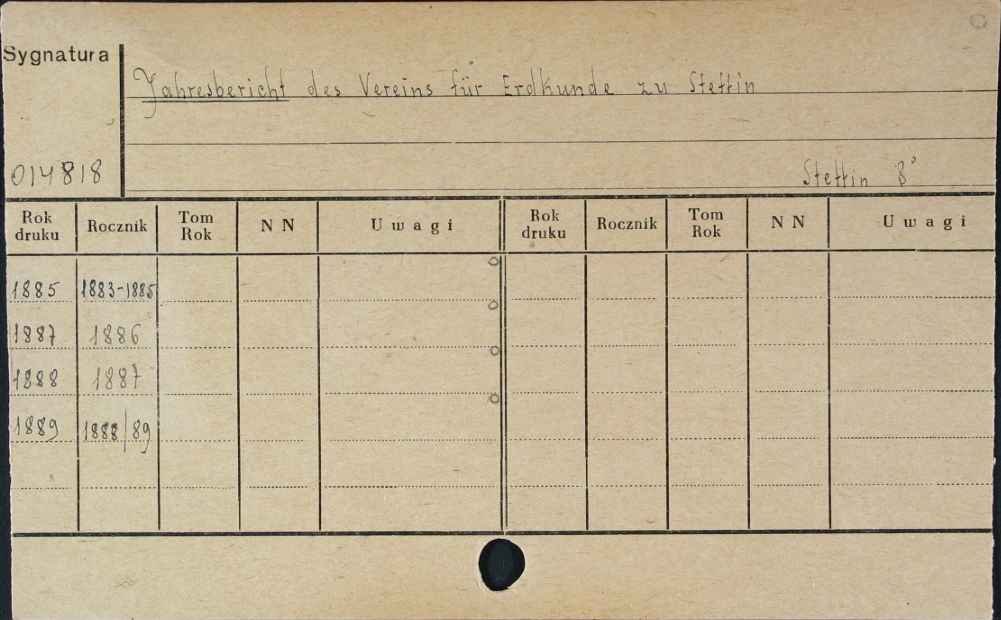 Sygnatura
Jahresbericht des Vereins für Erdkunde zu Stettin
014818
Stettin 8°
Rok druku Rocznik Tom Rok N N Uwagi Rok druku Rocznik Tom Rok N N Uwagi
1885 1883-1885
1887 1886
1888 1887
1889 1888/89